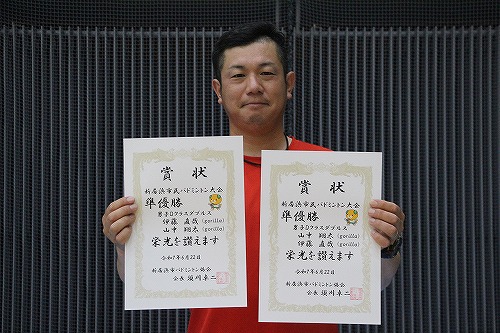 賞状
新居浜市民バドミントン大会
準優勝
男子Dクラスダブルス
伊藤 直哉 (gorilla)
山中 翔太 (gorilla)
栄光を讃えます
令和7年6月22日
新居浜市バドミントン協会
会長 須川 卓二
賞状
新居浜市民バドミントン大会
準優勝
男子Dクラスダブルス
山中 翔太 (gorilla)
伊藤 直哉 (gorilla)
栄光を讃えます
令和7年6月22日
新居浜市バドミントン協会
会長 須川 卓二